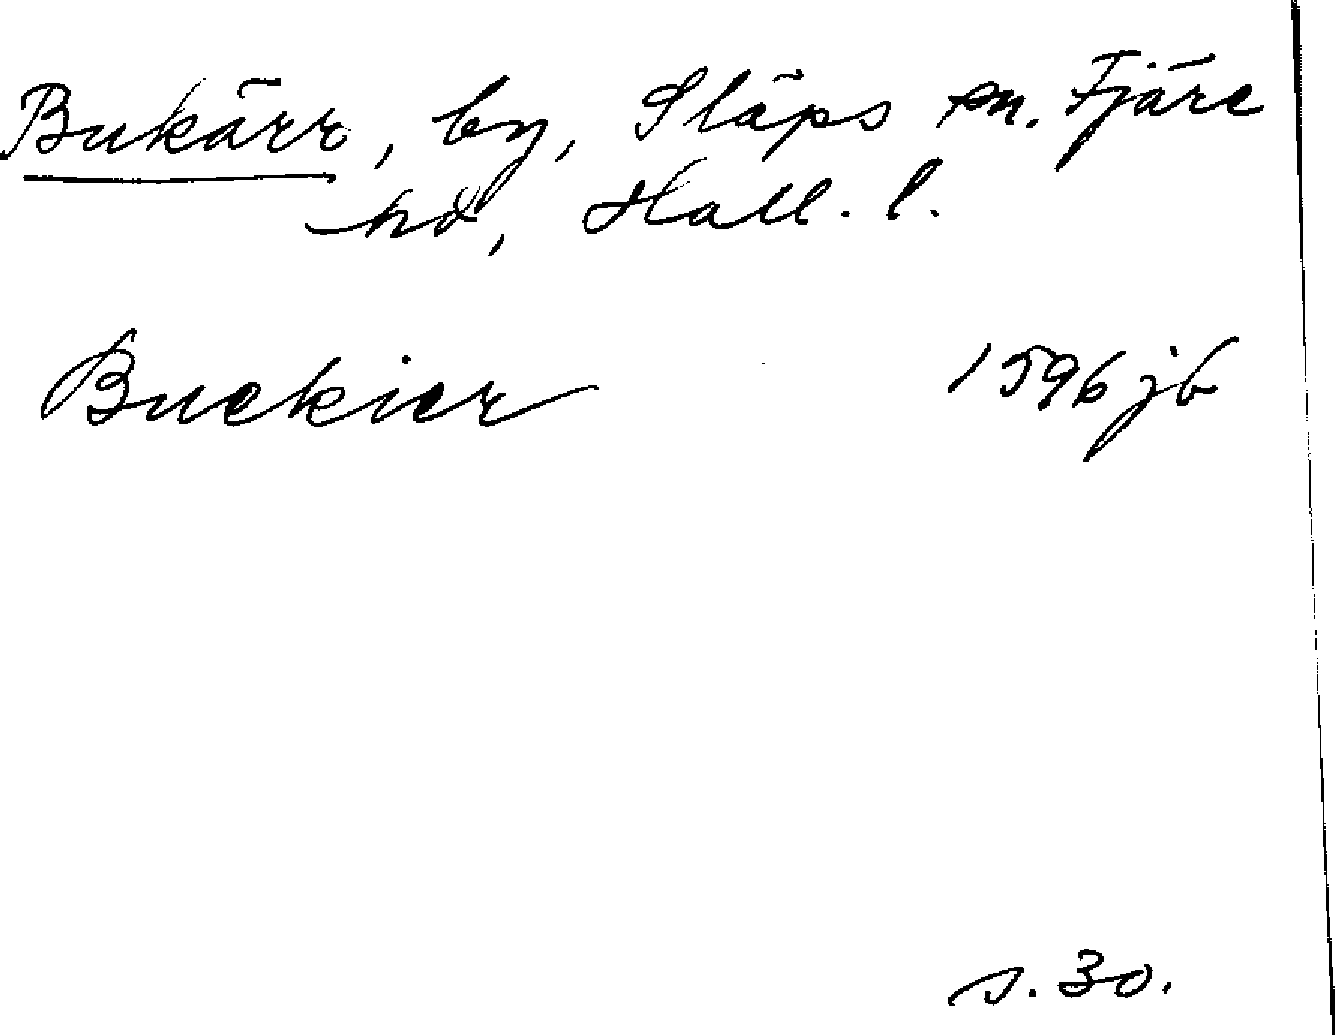 Bukärr, by, Släps sn. Fjäre
hd, Hall. l.
Buckier 1596 jb
s. 30.